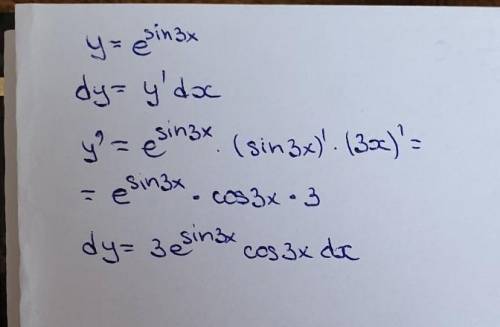 y = e^sin3x
dy = y' dx
y' = e^sin3x · (sin3x)' · (3x)' =
= e^sin3x · cos3x · 3
dy = 3e^sin3x cos3x dx